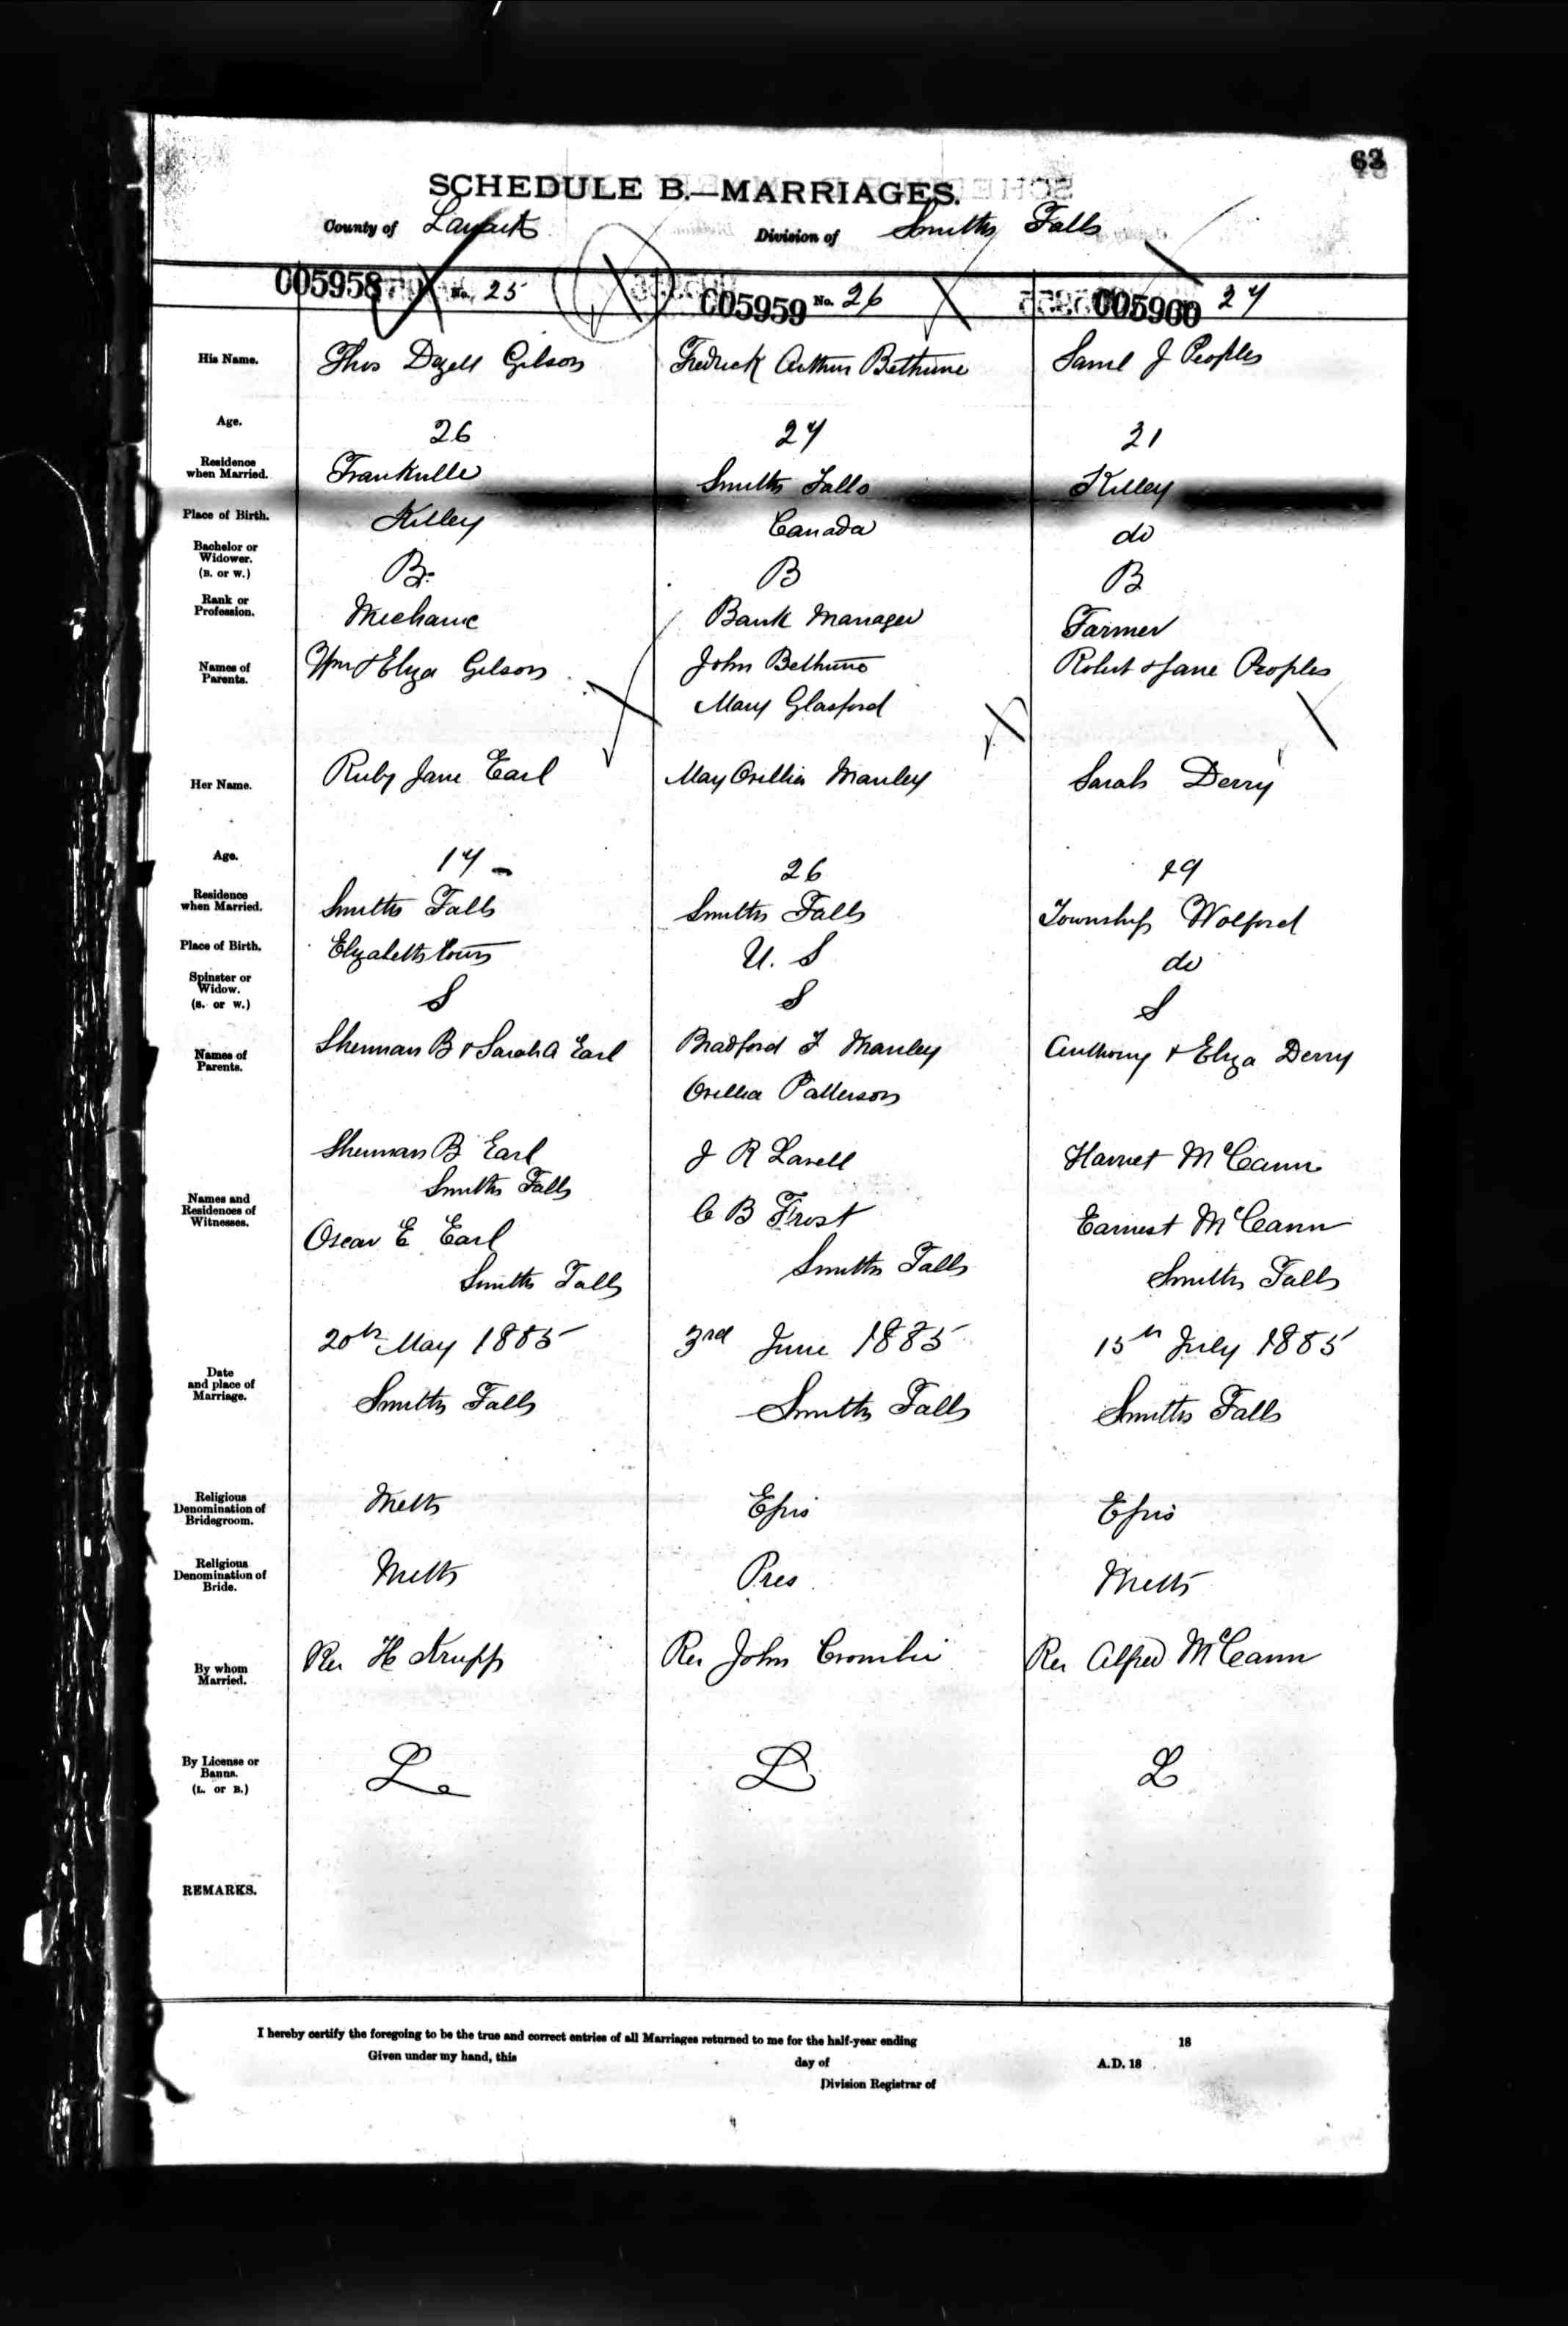 63
SCHEDULE B.—MARRIAGES.
County of Lanark Division of Smiths Falls
005958 No. 25 005959 No. 26 005960 27
His Name. Thos Dazell Gilson Fredrick Arthur Bethune Saml J Peoples
Age. 26 27 21
Residence when Married. Frankville Smiths Falls Kitley
Place of Birth. Kitley Canada do
Bachelor or Widower. (B. or W.) B. B B
Rank or Profession. Mechanic Bank Manager Farmer
Names of Parents. Wm & Eliza Gilson John Bethune Robert & Jane Peoples
Mary Glasford
Her Name. Ruby Jane Earl May Orillia Manley Sarah Derry
Age. 17 26 19
Residence when Married. Smiths Falls Smiths Falls Township Wolford
Place of Birth. Elizabethtown U. S do
Spinster or Widow. (S. or W.) S S S
Names of Parents. Sherman B & Sarah A Earl Bradford F Manley Anthony & Eliza Derry
Orillia Patterson
Names and Residences of Witnesses. Sherman B Earl J R Lavell Harriet McCann
Smiths Falls C B Frost Earnest McCann
Oscar E Earl Smiths Falls Smiths Falls
Smiths Falls
Date and place of Marriage. 20th May 1885 3rd June 1885 15th July 1885
Smiths Falls Smiths Falls Smiths Falls
Religious Denomination of Bridegroom. Meth Epis Epis
Religious Denomination of Bride. Meth Pres Meth
By whom Married. Rev H Rev John Crombie Rev Alfred McCann
By License or Banns. (L. or B.) L L L
REMARKS.
I hereby certify the foregoing to be the true and correct entries of all Marriages returned to me for the half-year ending 18
Given under my hand, this day of A.D. 18
Division Registrar of